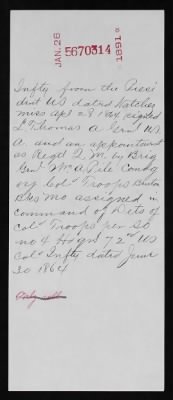 JAN. 26 5670314 1891
Infty from the Presi
dent US dated Natchez
miss apl 28 1864 signed
L Thomas A Genl US
A. and an appointment
as Regtl Q. M. by Brig
Genl Wm A Pile Comdg
org Cold Troops Benton
Bks Mo assigned in
command of Dets of
cold Troops per So
no 4 Hdqrs 72nd US
Cold Infty dated June
30 1864